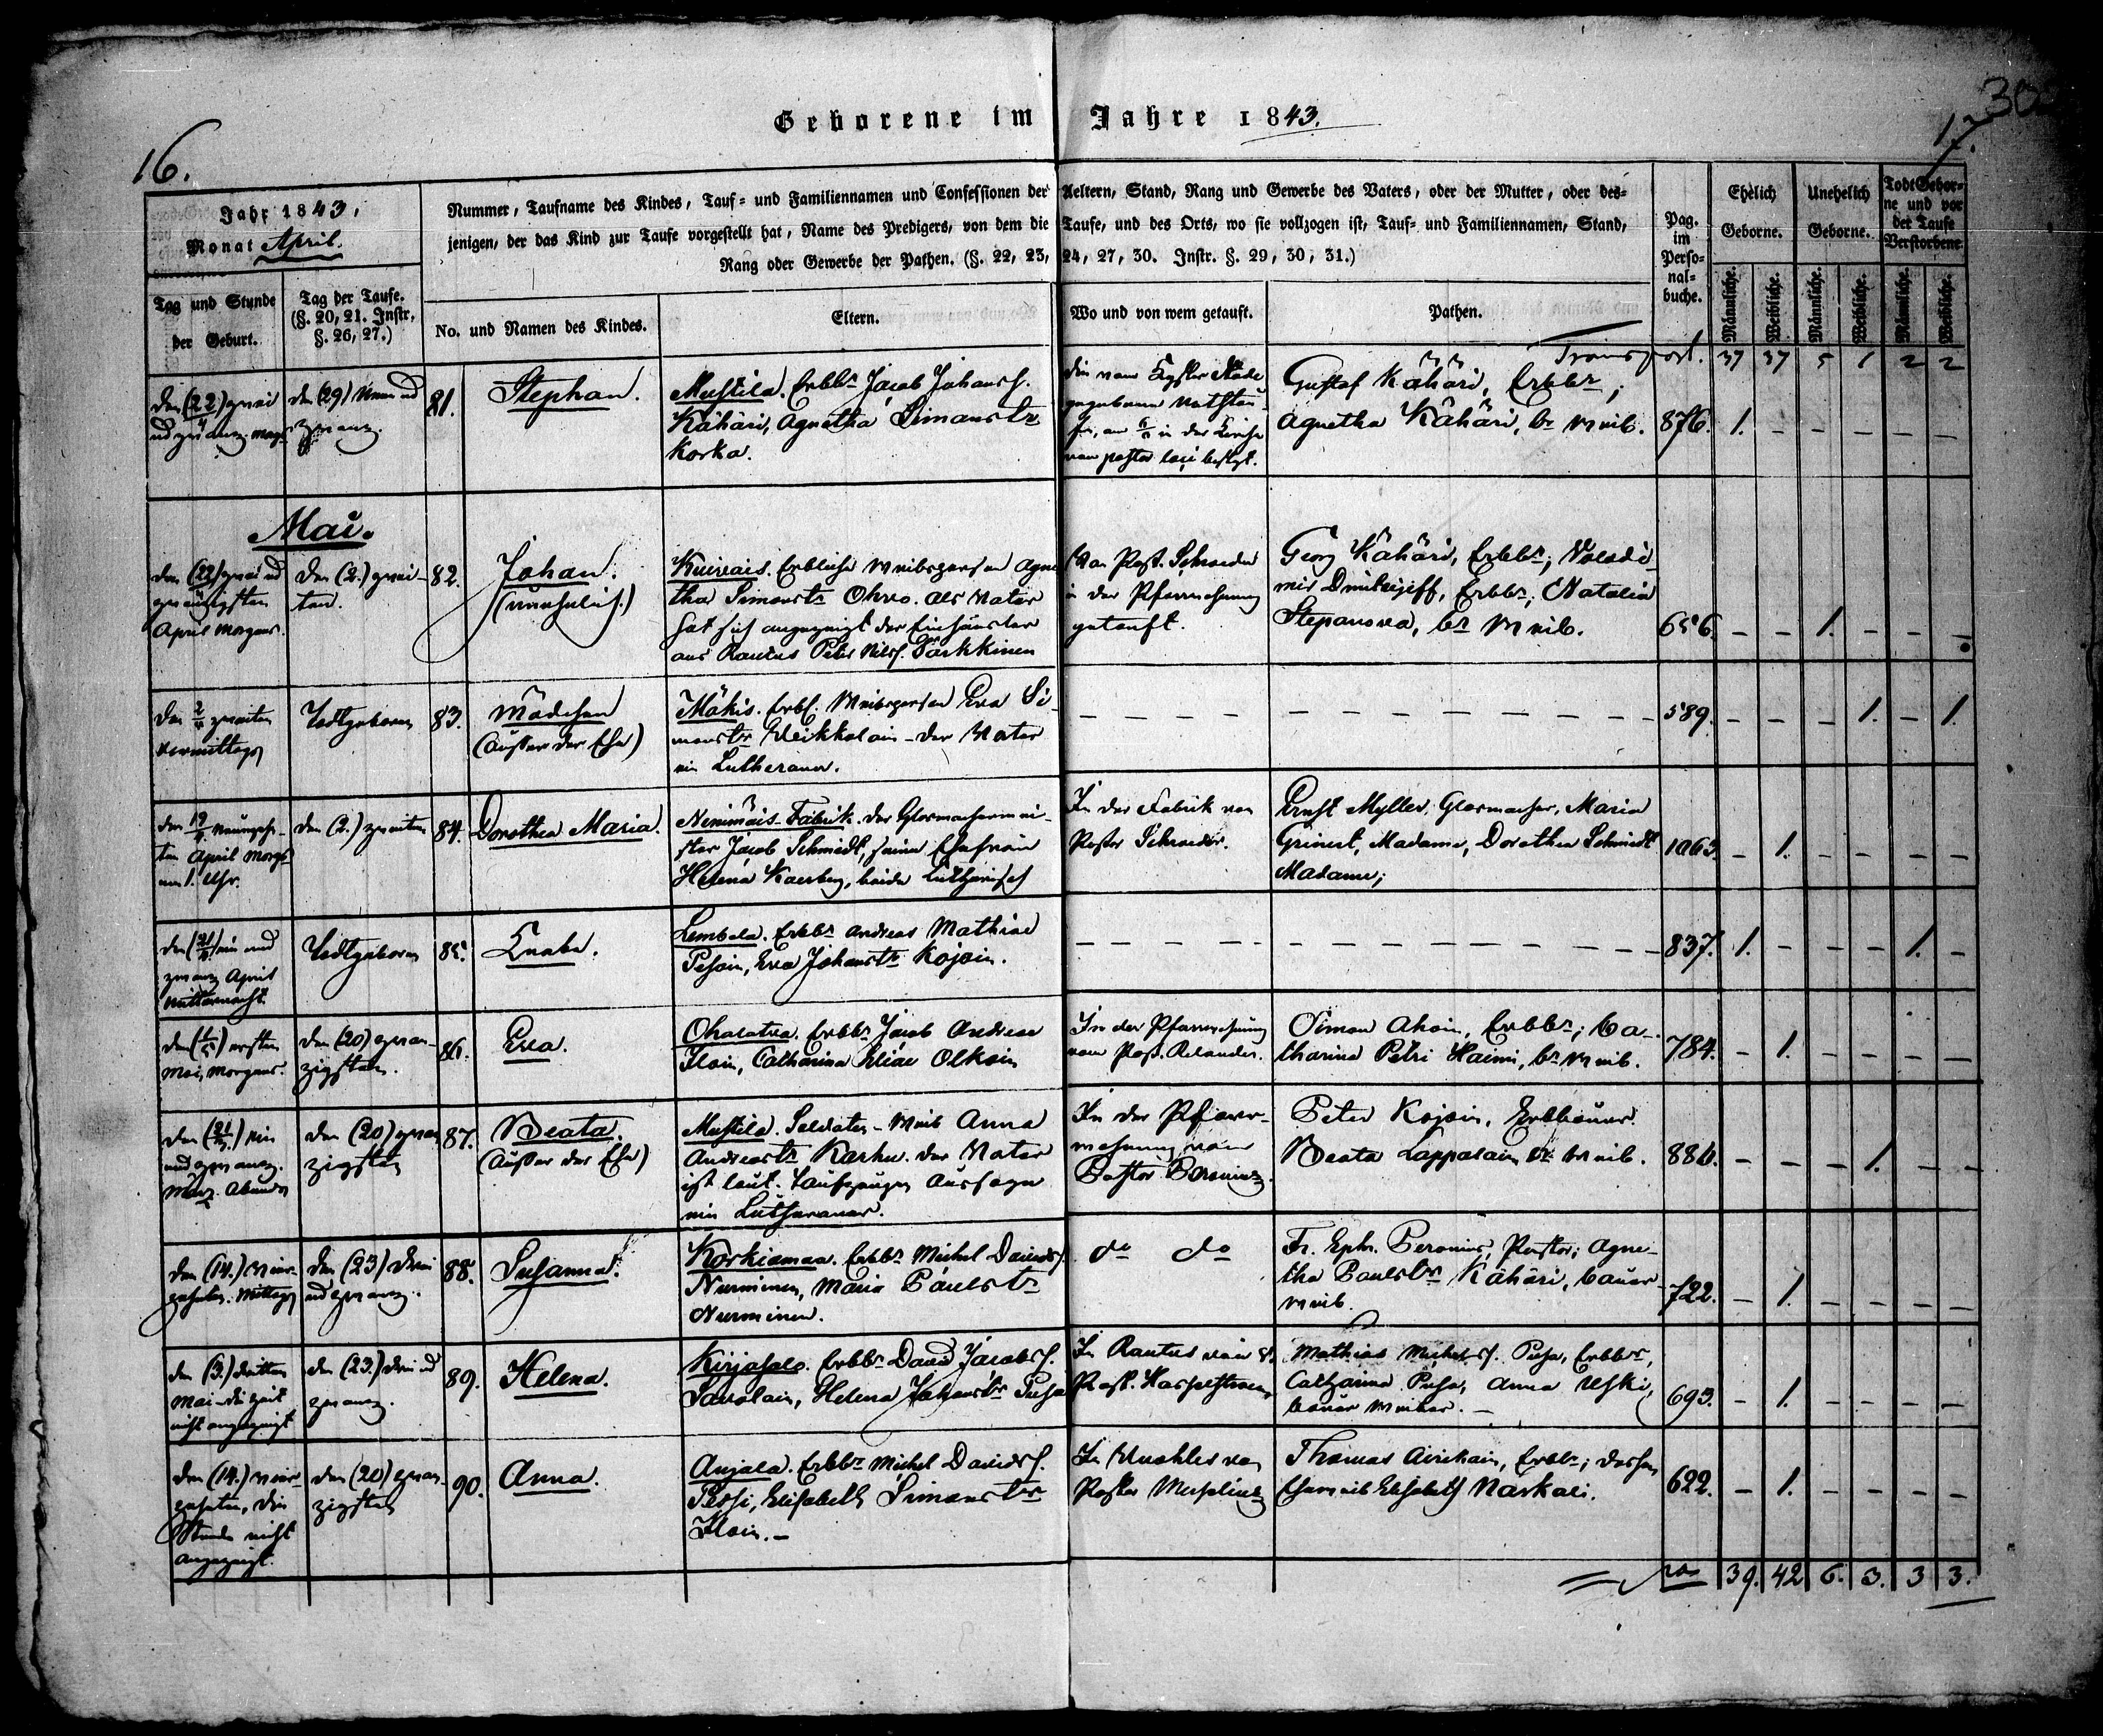 Geborene im Jahre 1843.
16.
17.
Jahr 1843,
Monat April.
Nummer, Taufname des Kindes, Tauf- und Familiennamen und Confessionen der Aeltern, Stand, Rang und Gewerbe des Vaters, oder der Mutter, oder des-
jenigen, der das Kind zur Taufe vorgestellt hat, Name des Predigers, von dem die Taufe, und des Orts, wo sie vollzogen ist, Tauf- und Familiennamen, Stand,
Rang oder Gewerbe der Pathen. (§. 22, 23, 24, 27, 30. Instr. §. 29, 30, 31.)
Pag.
im
Perso-
nal-
buche.
Ehelich
Geborne.
Unehelich
Geborne.
Todt Gebor-
ne und vor
der Taufe
Verstorbene.
Tag und Stunde
der Geburt.
Tag der Taufe.
(§. 20, 21. Instr.
§. 26, 27.)
No. und Namen des Kindes.
Eltern.
Wo und von wem getauft.
Pathen.
Männliche. Weibliche. Männliche. Weibliche. Männliche. Weibliche.
Transport. 37 37 5 1 2 2
den (22) zwei
und zwanz. Morg.
den (29) Neun und
zwanz.
81.
Stephan.
Mustila. Erbbr Jacob Johanss.
Kähäri, Agnetha Simanstr
Korka.
in der Kirche
vom pastor loci bestgt.
Gustaf Kähäri, Erbbr,
Agnetha Kähäri, br Weib.
876. 1. - - - - -
Mai.
den (22) zwei und
zwanzigsten
April Morgens.
den (2.) zwei-
ten.
82.
Johan.
(unehelich.)
Kuivais. Erbliche Weibsperson Agne
tha Simonstr Ohvo. Als Vater
hat sich angezeigt der Einhäusler
aus Rautus Peter Nilss. Pärkkinen
Von Past. Schroeder
in der Pfarrwohnung
getauft.
Georg Kähäri, Erbbr; Volodi-
mir Dmitrijeff, Erbbr; Natalia
Stepanova, br Weib.
656. - - 1. - - -
den 2 zweiten
Vormittags
Todtgeboren
83.
Mädchen
(Ausser der Ehe)
Mäkis. Erbl. Weibsperson Eva Si-
monstr Weikkolain - der Vater
ein Lutheraner.
589. - - - 1. - 1.
den 19 Neunzehn-
ten April Morgs
um 1. Uhr.
den (2.) zweiten
84.
Dorothea Maria.
Ninimäis. Fabrik. der Glasmachermei-
ster Jacob Schmidt, seine Ehefrau
Helena Kaerberg, beide lutherisch
In der Fabrik von
Pastor Schroeder.
Ernst Myller, Glasmacher, Maria
Grinert, Madame, Dorothea Schmidt
Madame;
1063. - 1. - - - -
den (21) ein und
zwanz April
Mitternacht.
Todtgeboren
85.
Knabe.
Lembala. Erbbr Andreas Mathiae
Pesoin, Eva Johanstr Kojoin.
837. 1. - - - 1. -
den (1) ersten
Mai, Morgens.
den (20) zwan-
zigsten.
86.
Eva.
Ohalatva. Erbbr Jacob Andreae
Iloin, Catharina Eliae Olkoin
In der Pfarrwohnung
vom Past. Relander.
Simon Ahoin, Erbbr; Ca-
tharina Petri Haimi, br Weib.
784. - 1. - - - -
den (21) ein
und zwanz.
März. Abends
den (20) zwan
zigsten
87.
Beata.
(Ausser der Ehe)
Mustila. Soldaten-Weib Anna
Andreastr Karhu. der Vater
ist laut. Taufzeugen Aussage
ein Lutheraner.
In der Pfarr-
wohnung vom
Pastor Peronius.
Peter Kojoin, Erbbauer.
Beata Lappalain br Weib.
886. - - - 1. - -
den (14.) vier-
zehnten. Mittags
den (23) drei
und zwanz.
88.
Susanna.
Korkiamaa. Erbbr Michel Davids.
Nurminen, Maria Paulstr
Nurminen.
do do
Fr. Ephr. Peronius, Pastor; Agne-
tha Paulstr Kähäri, bauer-
weib.
722. - 1. - - - -
den (3.) dritten
Mai - die Zeit
nicht angezeigt
den (23.) drei und
zwanz.
89.
Helena.
Kirjasalo. Erbbr David Jacobss.
Savolain, Helena Johanstr Pusa
In Rautus vom
Past.
Mathias Michelss. Pusa, Erbbr,
Catharina Pusa, Anna Uski,
bauer Weiber. -
693. - 1. - - - -
den (14.) vier
zehnten, die
Stunde nicht
angezeigt.
den (20) zwan-
zigsten
90.
Anna.
Anjala. Erbbr Michel Davids.
Pessi, Elisabeth Simonstr
Iloin. -
In Wuohles von
Pastor
Thomas Airikain, Erbbr; dessen
Eheweib Elisabeth Naskali.
622. - 1. - - - -
39. 42 6. 3. 3 3.